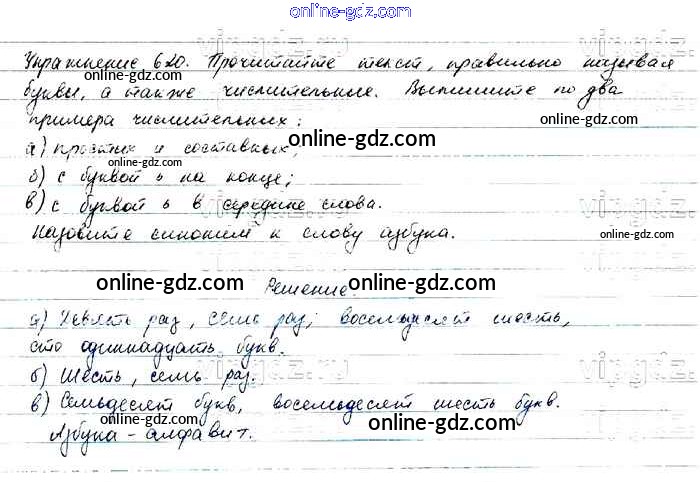 online-gdz.com
Упражнение 620. Прочитайте текст, правильно называя
online-gdz.com online-gdz.com
буквы, а также числительные. Выпишите по два
примера числительных:
online-gdz.com
а) простых и составных;
online-gdz.com
б) с буквой ь на конце;
в) с буквой ь в середине слова.
online-gdz.com
Назовите синоним к слову азбука.
online-gdz.com online-gdz.com
Решение
а) Девять раз, семь раз; восемьдесят шесть,
сто одиннадцать букв.
online-gdz.com
б) Шесть, семь раз.
online-gdz.com
в) Семьдесят букв, восемьдесят шесть букв.
online-gdz.com
Азбука - алфавит.
online-gdz.com